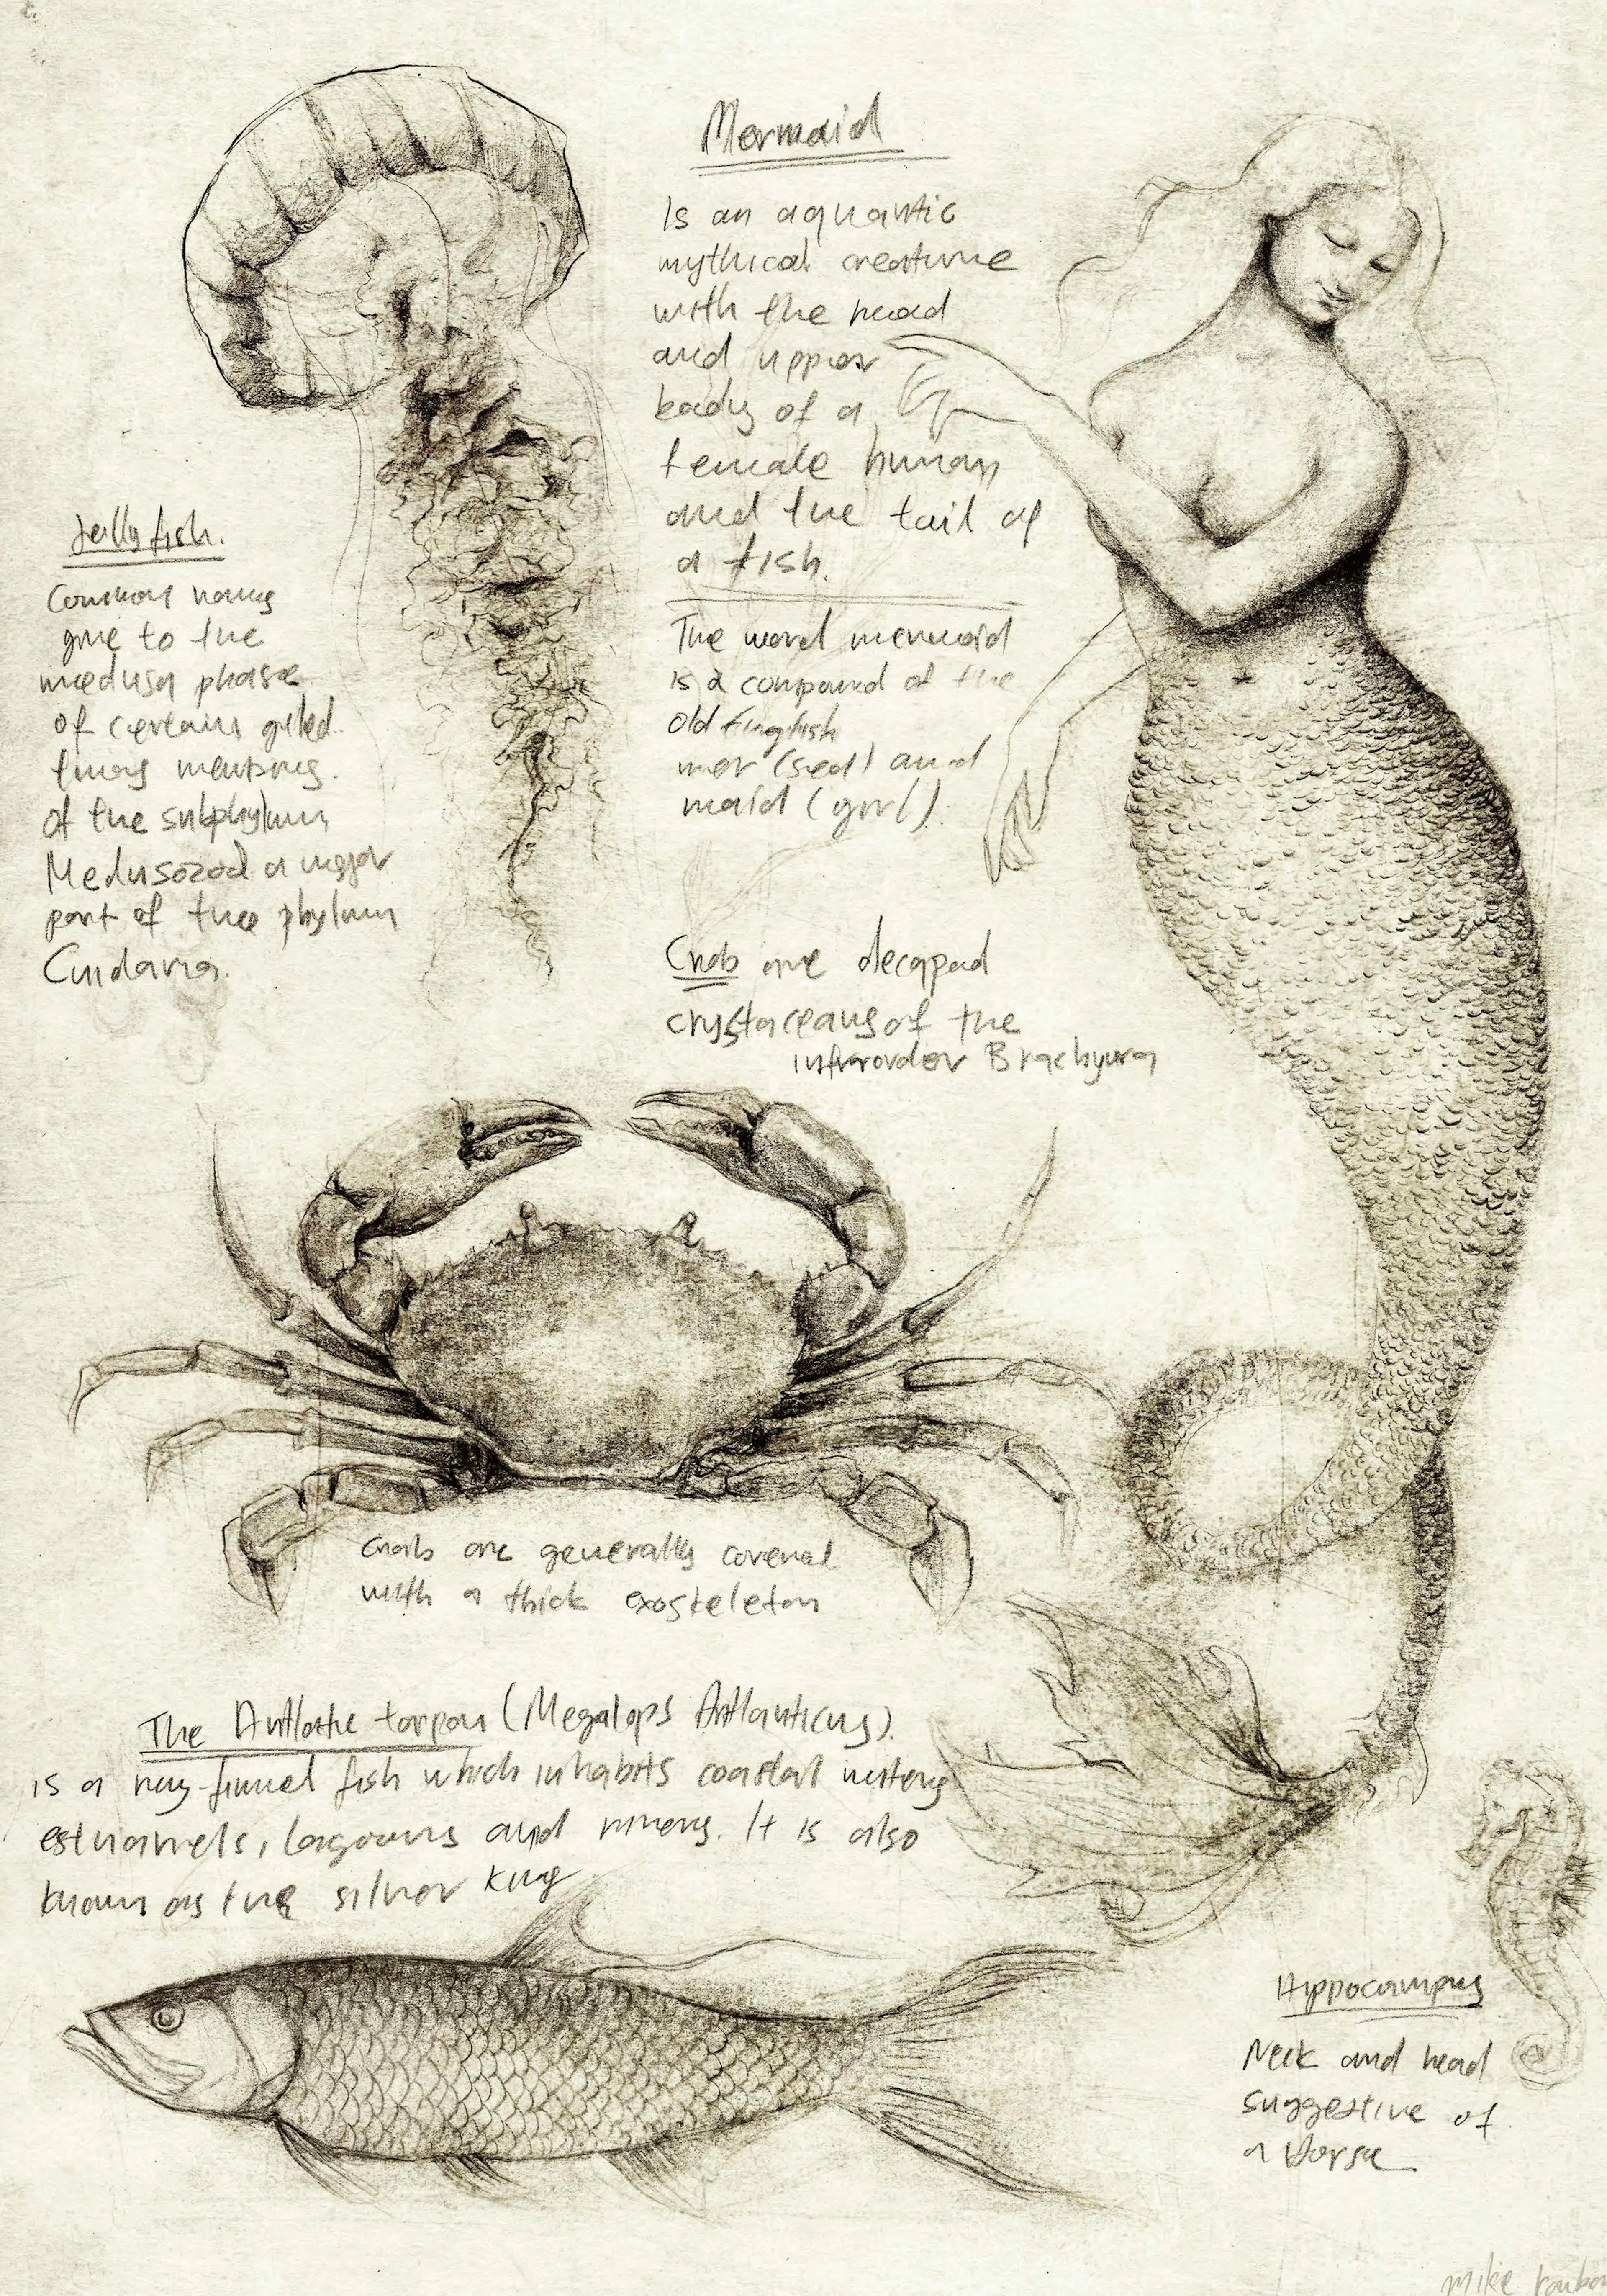 Mermaid
Is an aquantic
mythical creature
with the head
and upper
body of a
female human
and the tail of
a fish.
The word mermaid
is a compound of the
old English
mer (sea) and
maid (girl).
Jellyfish.
Common names
give to the
medusa phase
of certain
members.
of the subphylum
Medusozoa a major
part of the phylum
Cnidaria.
Crab are decapod
crystaceans of the
infraorder Brachyura
Crabs are generally covered
with a thick exoskeleton
The Antlantic tarpon (Megalops Antlanticus).
is a ray-finned fish which inhabits coastal waters
estuaries, lagoons and rivers. It is also
known as the silver king
Hippocampus
Neck and head
suggestive of
a Horse
mike